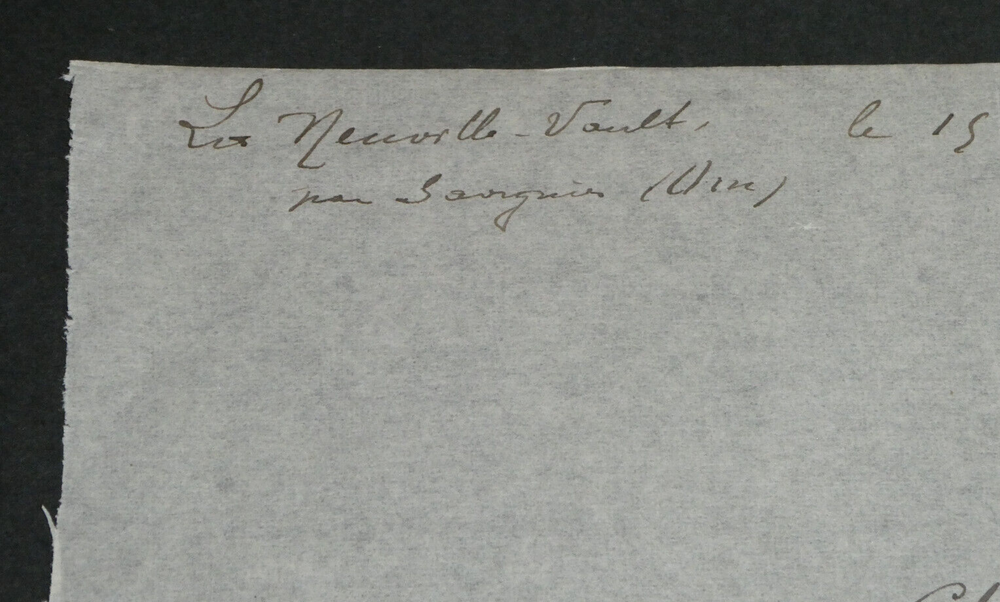 La Neuville-Vault, le 15
par Savignies (Oise)